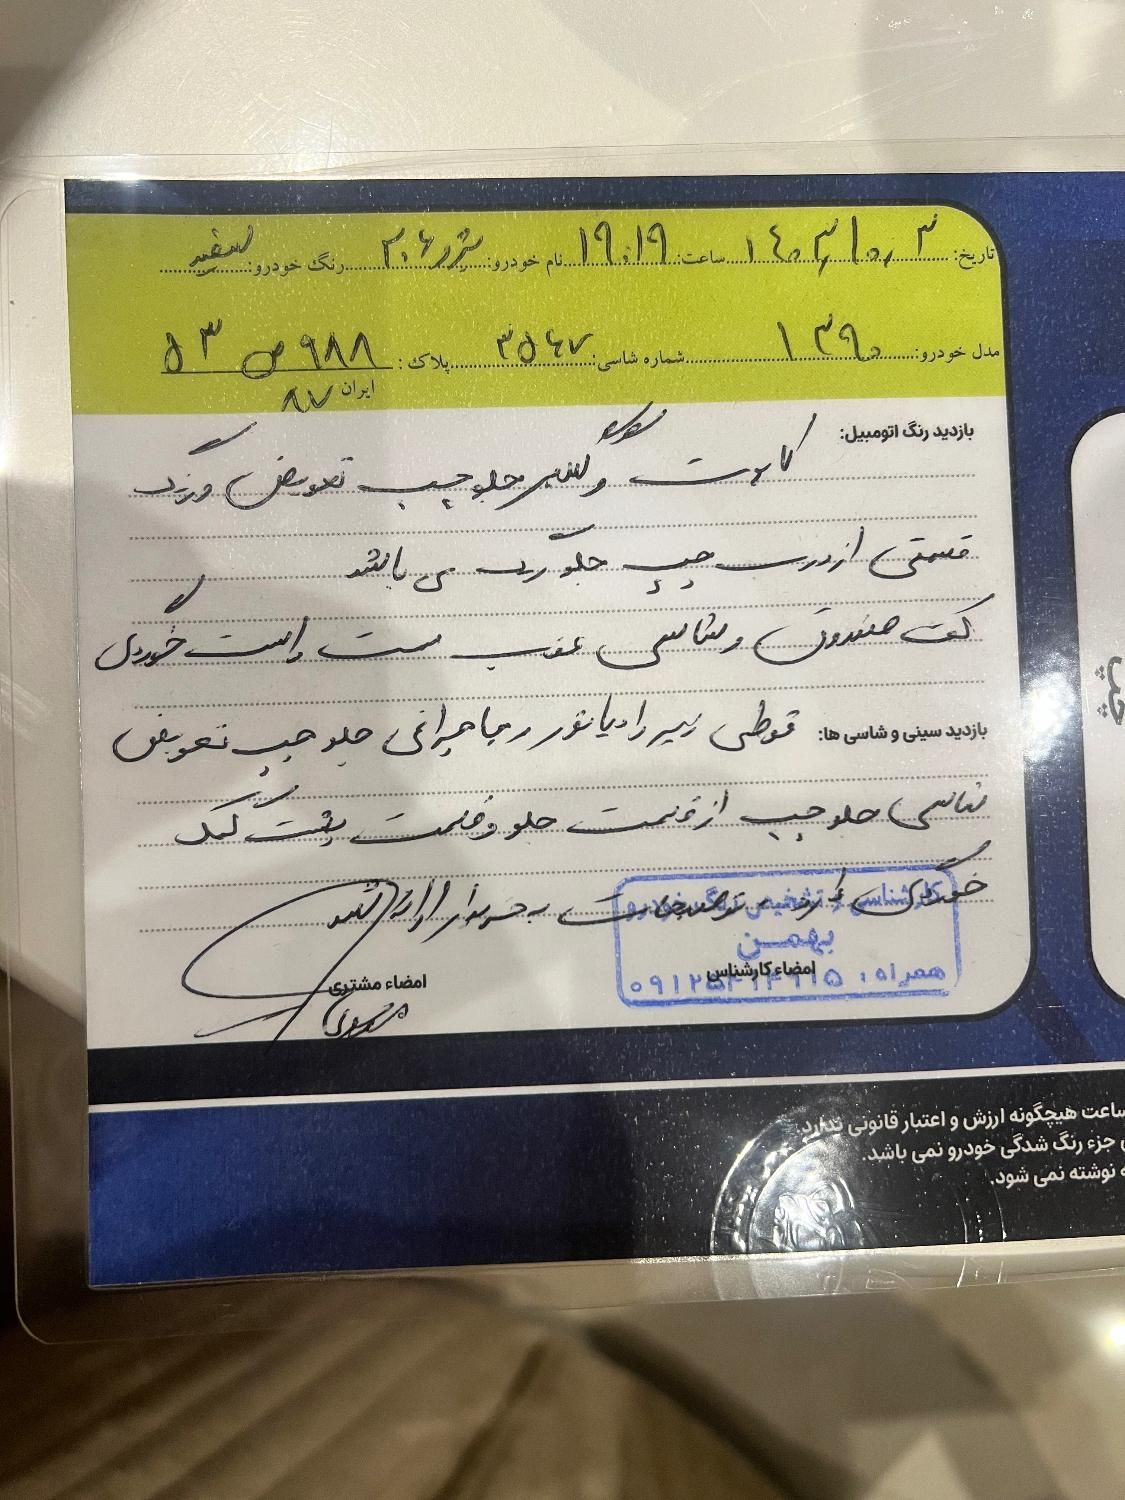 تاریخ: ۱۴۰۳/۱۰/۳ ساعت: ۱۹:۱۹ نام خودرو: پژو ۲۰۶ رنگ خودرو: سفید
مدل خودرو: ۱۳۹۰ شماره شاسی: ۳۵۶۷ پلاک: ۵۳ ص ۹۸۸
ایران ۸۷
بازدید رنگ اتومبیل:
کاپوت و گلگیر جلو چپ تعویض و رنگ
قسمتی از درب چپ جلو رنگ می باشد
کف صندوق و شاسی عقب سمت راست خوردگی
بازدید سینی و شاسی ها: قوطی زیر رادیاتور و جا چراغی جلو چپ تعویض
شاسی جلو چپ از قسمت جلو و قسمت پشت کمک
خوردگی دارد. توضیحات به خریدار ارائه شد
کارشناسی و تشخیص رنگ خودرو
بهمن
امضاء کارشناس
همراه:
امضاء مشتری
چپ
ساعت هیچگونه ارزش و اعتبار قانونی ندارد.
جزء رنگ شدگی خودرو نمی باشد.
نوشته نمی شود.